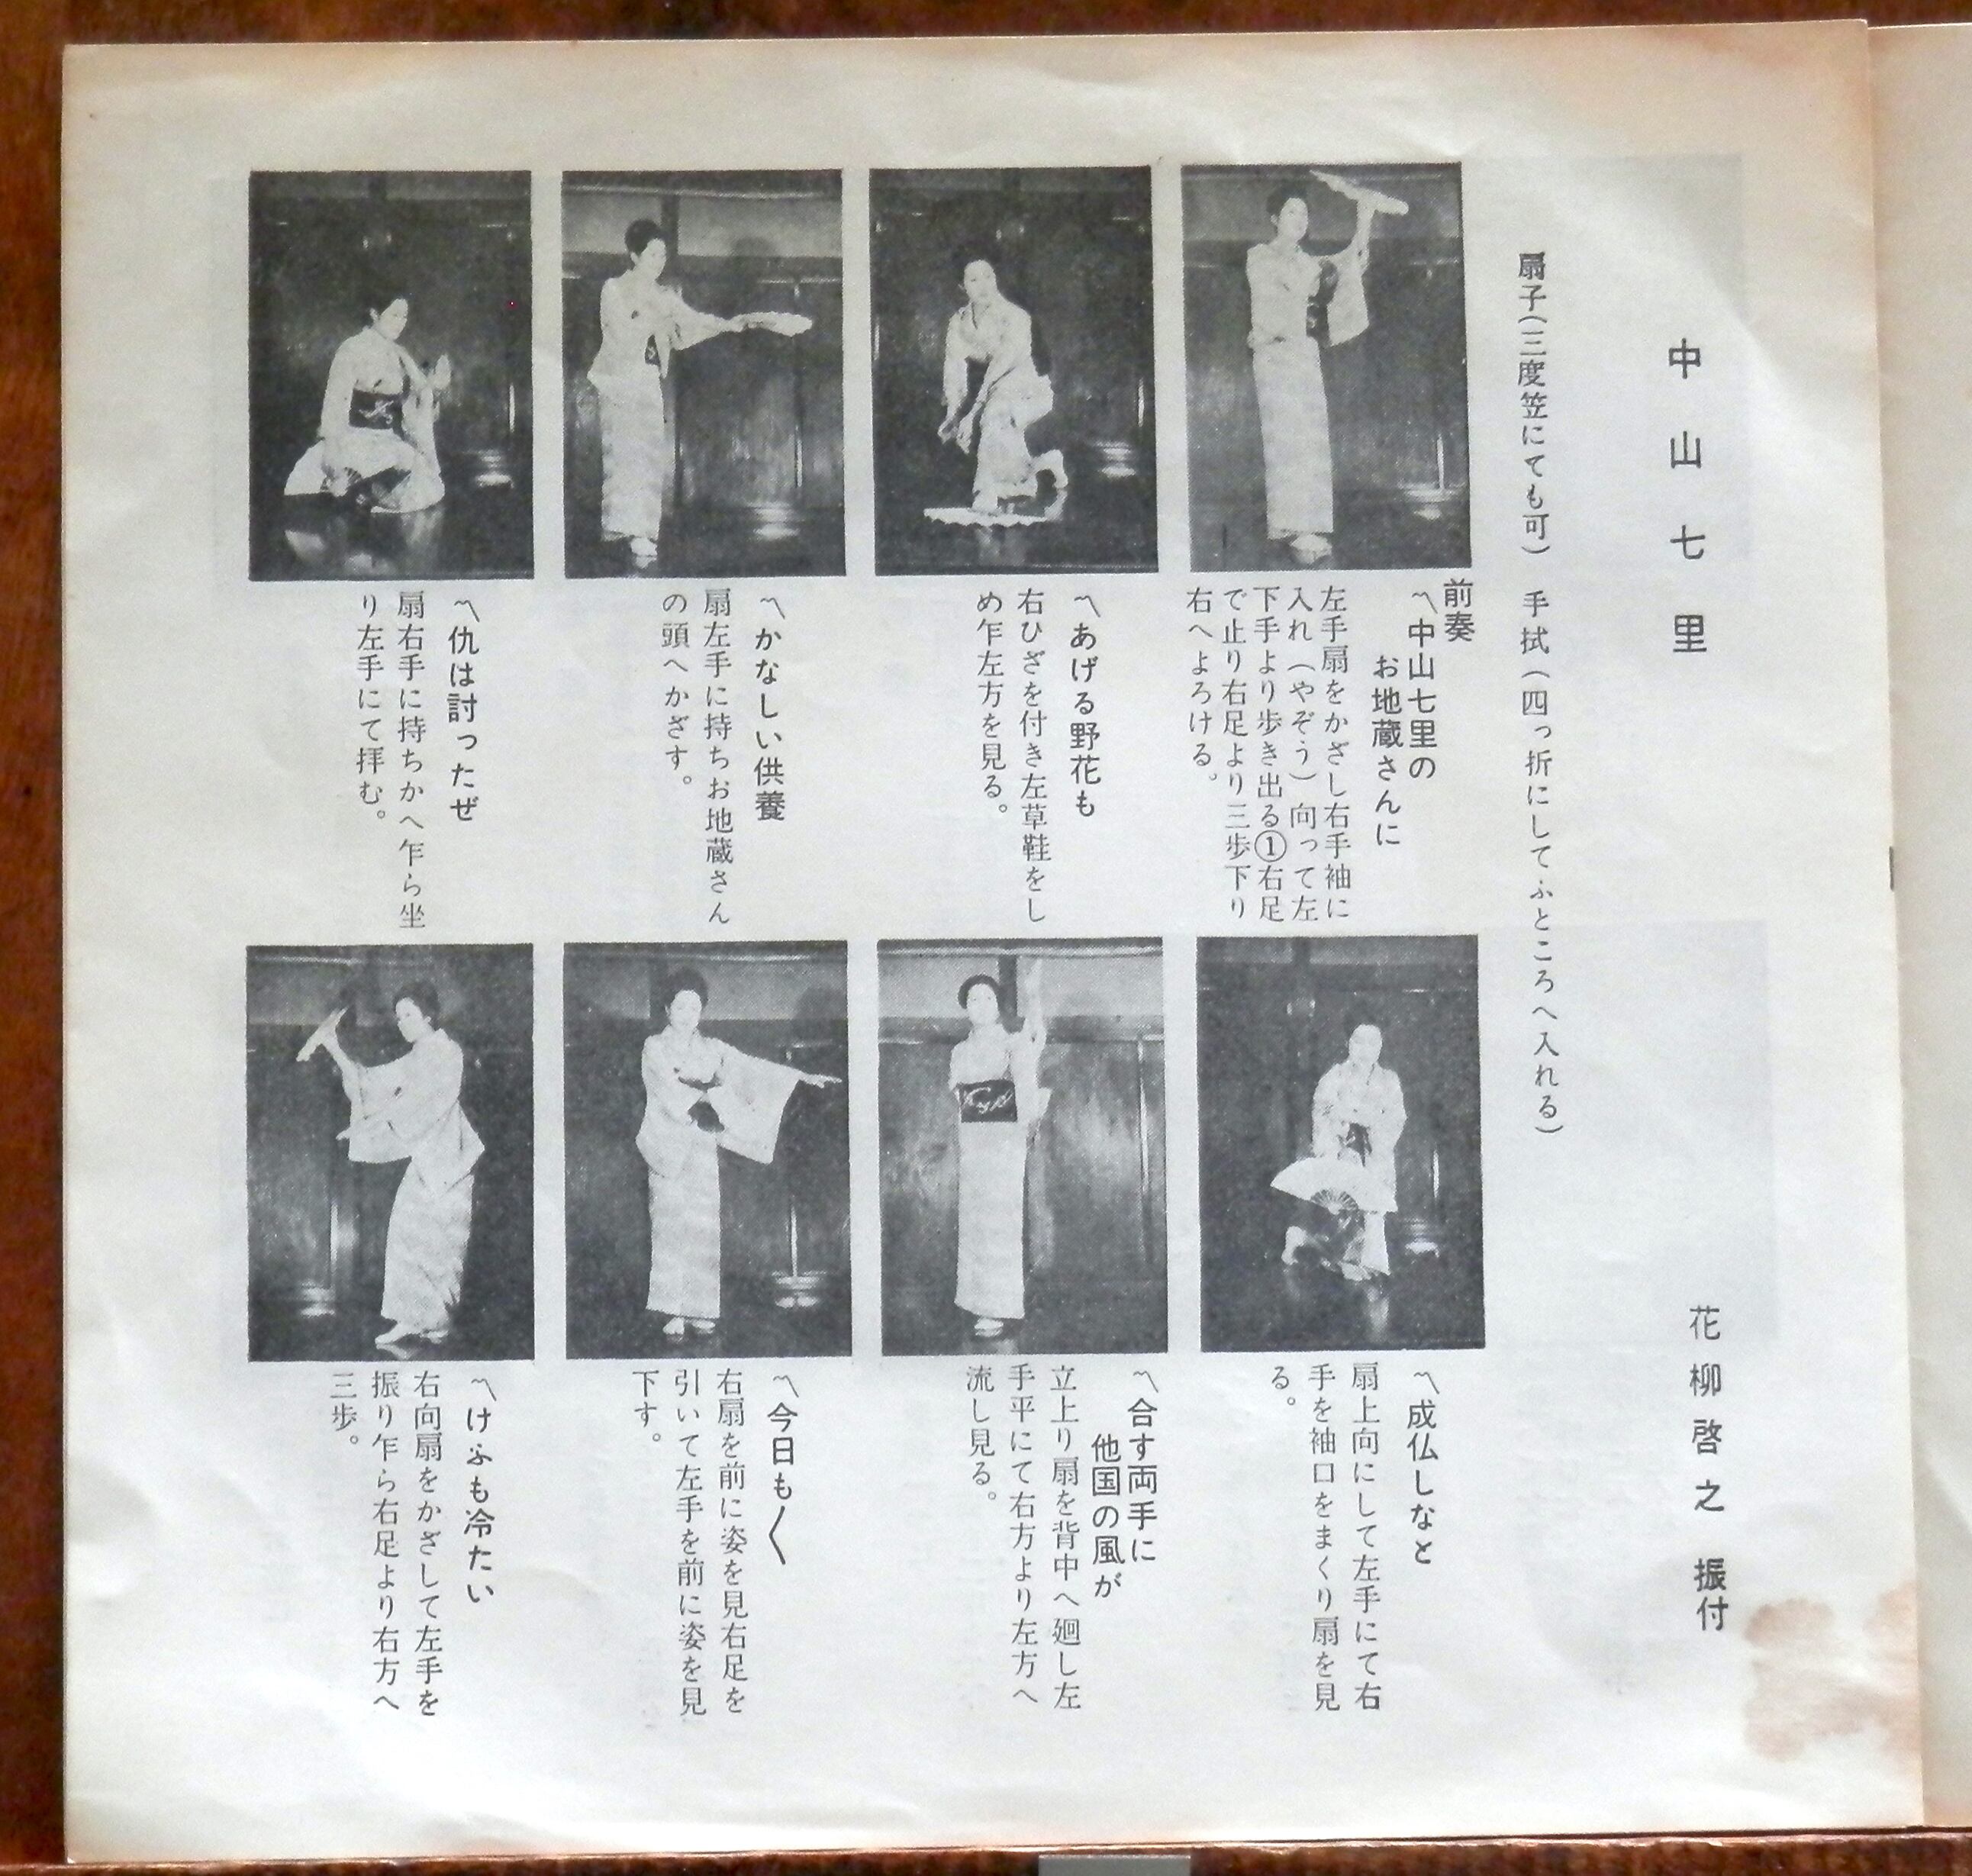 中山七里
花柳啓之 振付
扇子（三度笠にても可） 手拭（四っ折にしてふところへ入れる）
前奏
〽中山七里の
お地蔵さんに
左手扇をかざし右手袖に
入れ（やぞう）向って左
下手より歩き出る①右足
で止り右足より三歩下り
右へよろける。
〽あげる野花も
右ひざを付き左草鞋をし
め乍左方を見る。
〽かなしい供養
扇左手に持ちお地蔵さん
の頭へかざす。
〽仇は討ったぜ
扇右手に持ちかへ乍ら坐
り左手にて拝む。
〽成仏しなと
扇上向にして左手にて右
手を袖口をまくり扇を見
る。
〽合す両手に
他国の風が
立上り扇を背中へ廻し左
手平にて右方より左方へ
流し見る。
〽今日も〱
右扇を前に姿を見右足を
引いて左手を前に姿を見
下す。
〽けふも冷たい
右向扇をかざして左手を
振り乍ら右足より右方へ
三歩。